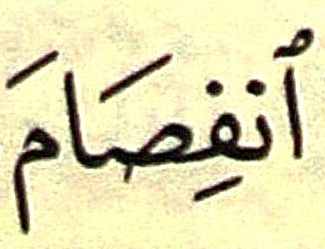 ٱنفِصَامَ